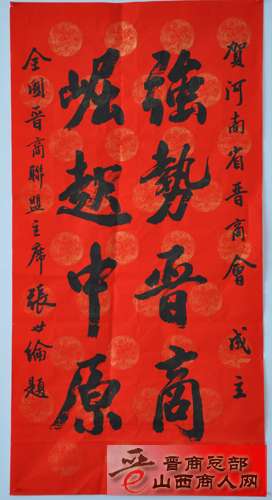 贺河南省晋商会成立
強勢晋商
崛起中原
全國晋商聯盟主席張世倫題
晋商总部
山西商人网